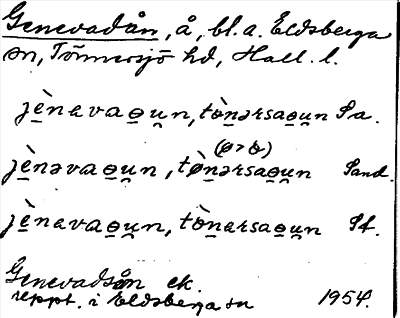 Genevadsån, å, bl. a. Eldsberga
sn, Tönnersjö hd, Hall. l.
jènavaɵu̯n, tòn̲ərsaɵu̯n Sa.
(ɵ > ò)
jènəvaɵu̯n, tøn̲ərsaɵu̯n Sand.
jènavaɵu̯n, tòn̲arsaɵu̯n St.
Genevadsån ek.
uppt. i Eldsberga sn 1954.